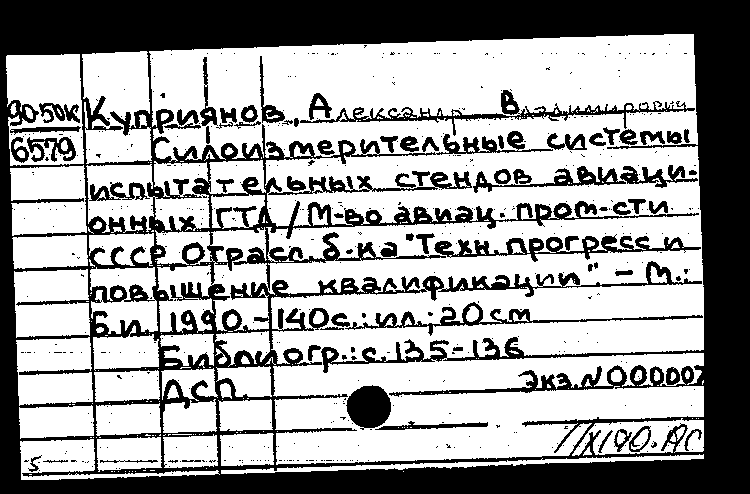 90-50к Куприянов, Александр Владимирович
6579 Силоизмерительные системы
испытательных стендов авиаци-
онных ГТД / М-во авиац. пром-сти
СССР, Отрасл. б-ка "Техн. прогресс и
повышение квалификации". - М.:
Б.и., 1990. - 140с.: ил.; 20см
Библиогр.: с. 135-136
ДСП. Экз. N000007
5